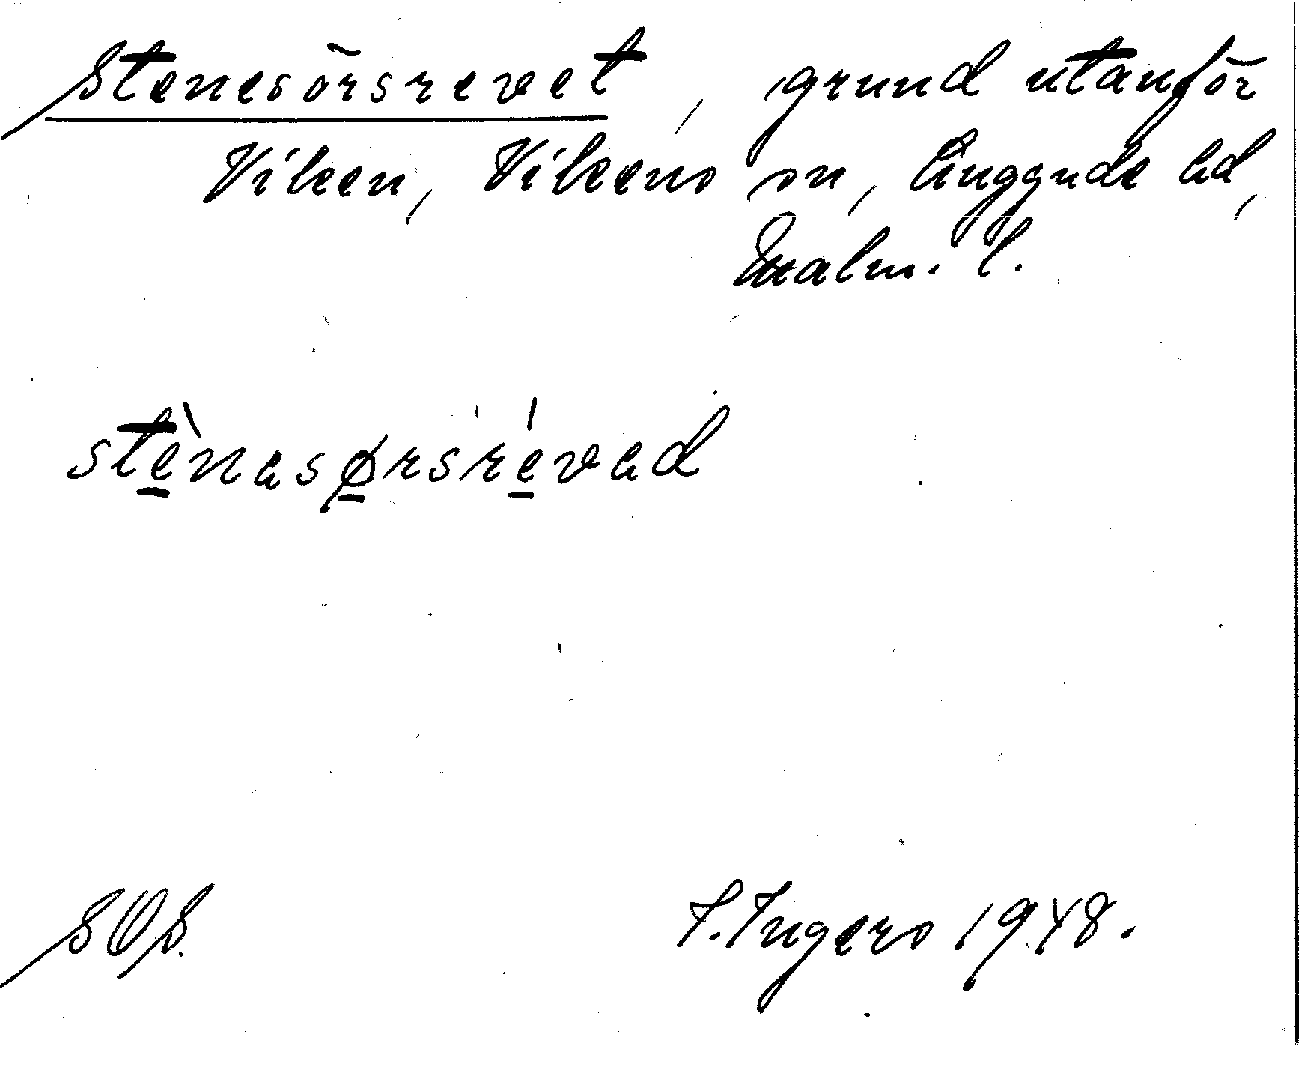 Stenesörsrevet, grund utanför
Viken, Vikens sn, Luggude hd,
Malm. l.
stènasø̱rsrévad
SOS.
I. Ingers 1948.